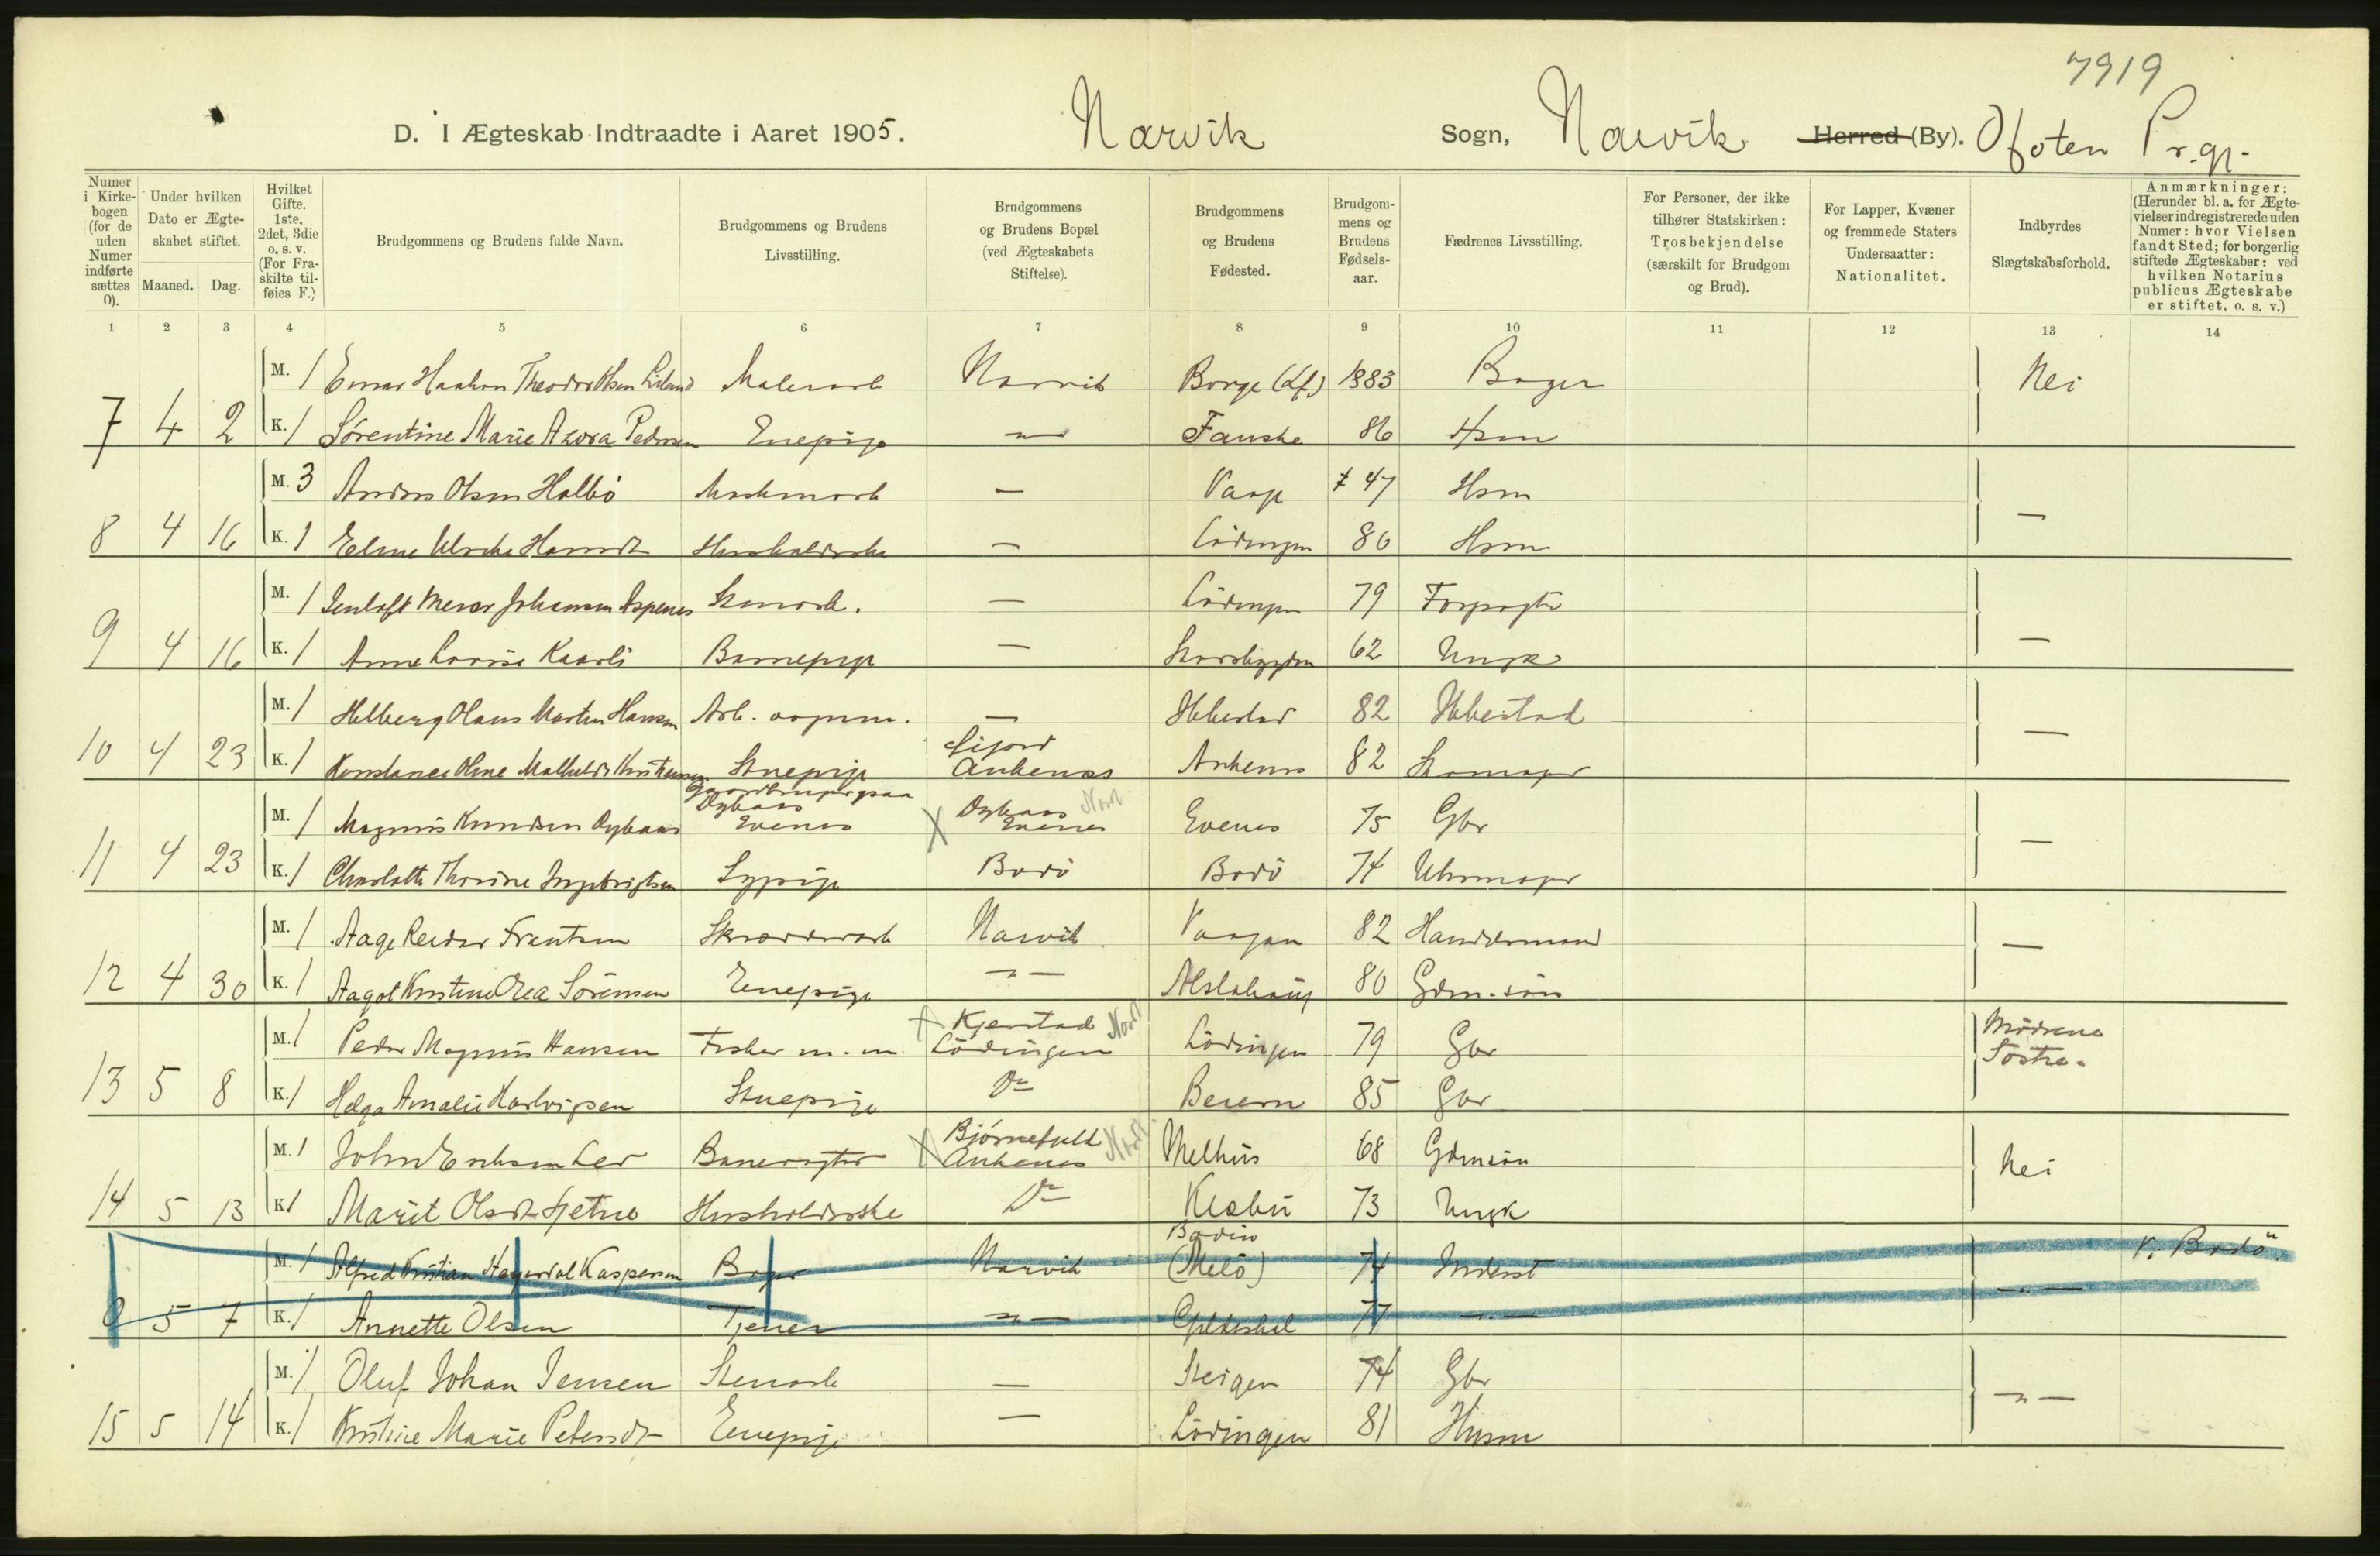 7919
D. I Ægteskab Indtraadte i Aaret 1905. Narvik Sogn, Narvik Herred (By). Ofoten Pr.gj.
Numer i Kirkebogen (for de uden Numer indførte sættes 0).
Under hvilken Dato er Ægteskabet stiftet.
Maaned. Dag.
Hvilket Gifte. 1ste, 2det, 3die o. s. v. (For Fraskilte tilføies F.)
Brudgommens og Brudens fulde Navn.
Brudgommens og Brudens Livsstilling.
Brudgommens og Brudens Bopæl (ved Ægteskabets Stiftelse).
Brudgommens og Brudens Fødested.
Brudgommens og Brudens Fødselsaar.
Fædrenes Livsstilling.
For Personer, der ikke tilhører Statskirken: Trosbekjendelse (særskilt for Brudgom og Brud).
For Lapper, Kvæner og fremmede Staters Undersaatter: Nationalitet.
Indbyrdes Slægtskabsforhold.
Anmærkninger: (Herunder bl. a. for Ægtevielser indregistrerede uden Numer: hvor Vielsen fandt Sted; for borgerlig stiftede Ægteskaber: ved hvilken Notarius publicus Ægteskabe er stiftet, o. s. v.)
1 2 3 4 5 6 7 8 9 10 11 12 13 14
M. 1 Einar Haakon Theodor Olsen Malerarb Narvik Borge (Lf) 1883 Bager Nei
7 4 2 K. 1 Sørentine Marie Azora Pedersen Enepige – " – Fauske 86 Hsm
M. 3 Anders Olsen Halbö — 47 Hsm
8 4 16 K. 1 Husholderske — Lödingen 80 Hsm —
M. 1 Johansen Aspenes — Lödingen 79 Forpagter
9 4 16 K. 1 Anne Lovise Kaarli Barnepige — 62 Ungk —
M. 1 Helberg Olaus Martin Hansen Arb. — Ibbestad 82 Ibbestad
10 4 23 K. 1 Konstance Oline Mathilde Kristensen Stuepige Ankenes Ankenes 82 Skomager —
M. 1 Magnus Knudsen Dybaas Dybaas Evenes Dybaas Evenes Evenes 75 Gbr
11 4 23 K. 1 Charlotte Thorine Ingebrigtsen Sypige Bodö Bodö 74 Uhrmager —
M. 1 Aage Reidar Frantzen Skrædderarb Narvik Vaagan 82 Handelsmand
12 4 30 K. 1 Aagot Kristine Olea Sörensen Enepige – " – Alstahaug 80 Gdm.sön —
M. 1 Peder Magnus Hansen Fisker m.m. Kjerstad Lödingen Lödingen 79 Gbr Mödrene Söstre.
13 5 8 K. 1 Helga Amalie Hartvigsen Stuepige Do Beiern 85 Gbr
M. 1 John Eriksen Ler Banevogter Björnefjeld Ankenes Melhus 68 Gdmsön Nei
14 5 13 K. 1 Marit Olsdt Gjetne Husholderske Do Klæbu 73 Ungk
M. 1 Alfred Kristian Kaspersen Bager Narvik Bodin (Melö) 74 Inderst K. Bodö
0 5 7 K. 1 Annette Olsen Tjener – " – Gildeskal 77 – " –
M. 1 Oluf Johan Jensen Stenarb — Steigen 74 Gbr
15 5 14 K. 1 Kristine Marie Petersdt Enepige — Lödingen 81 Husm – " –